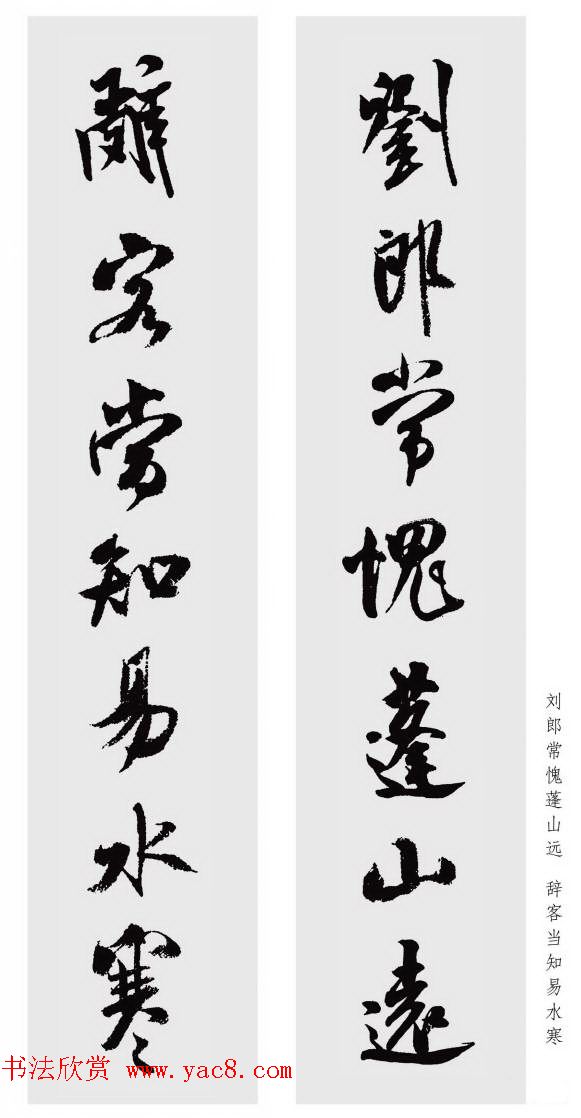 劉郎常愧蓬山遠
辭客當知易水寒
刘郎常愧蓬山远 辞客当知易水寒
书法欣赏 www.yac8.com